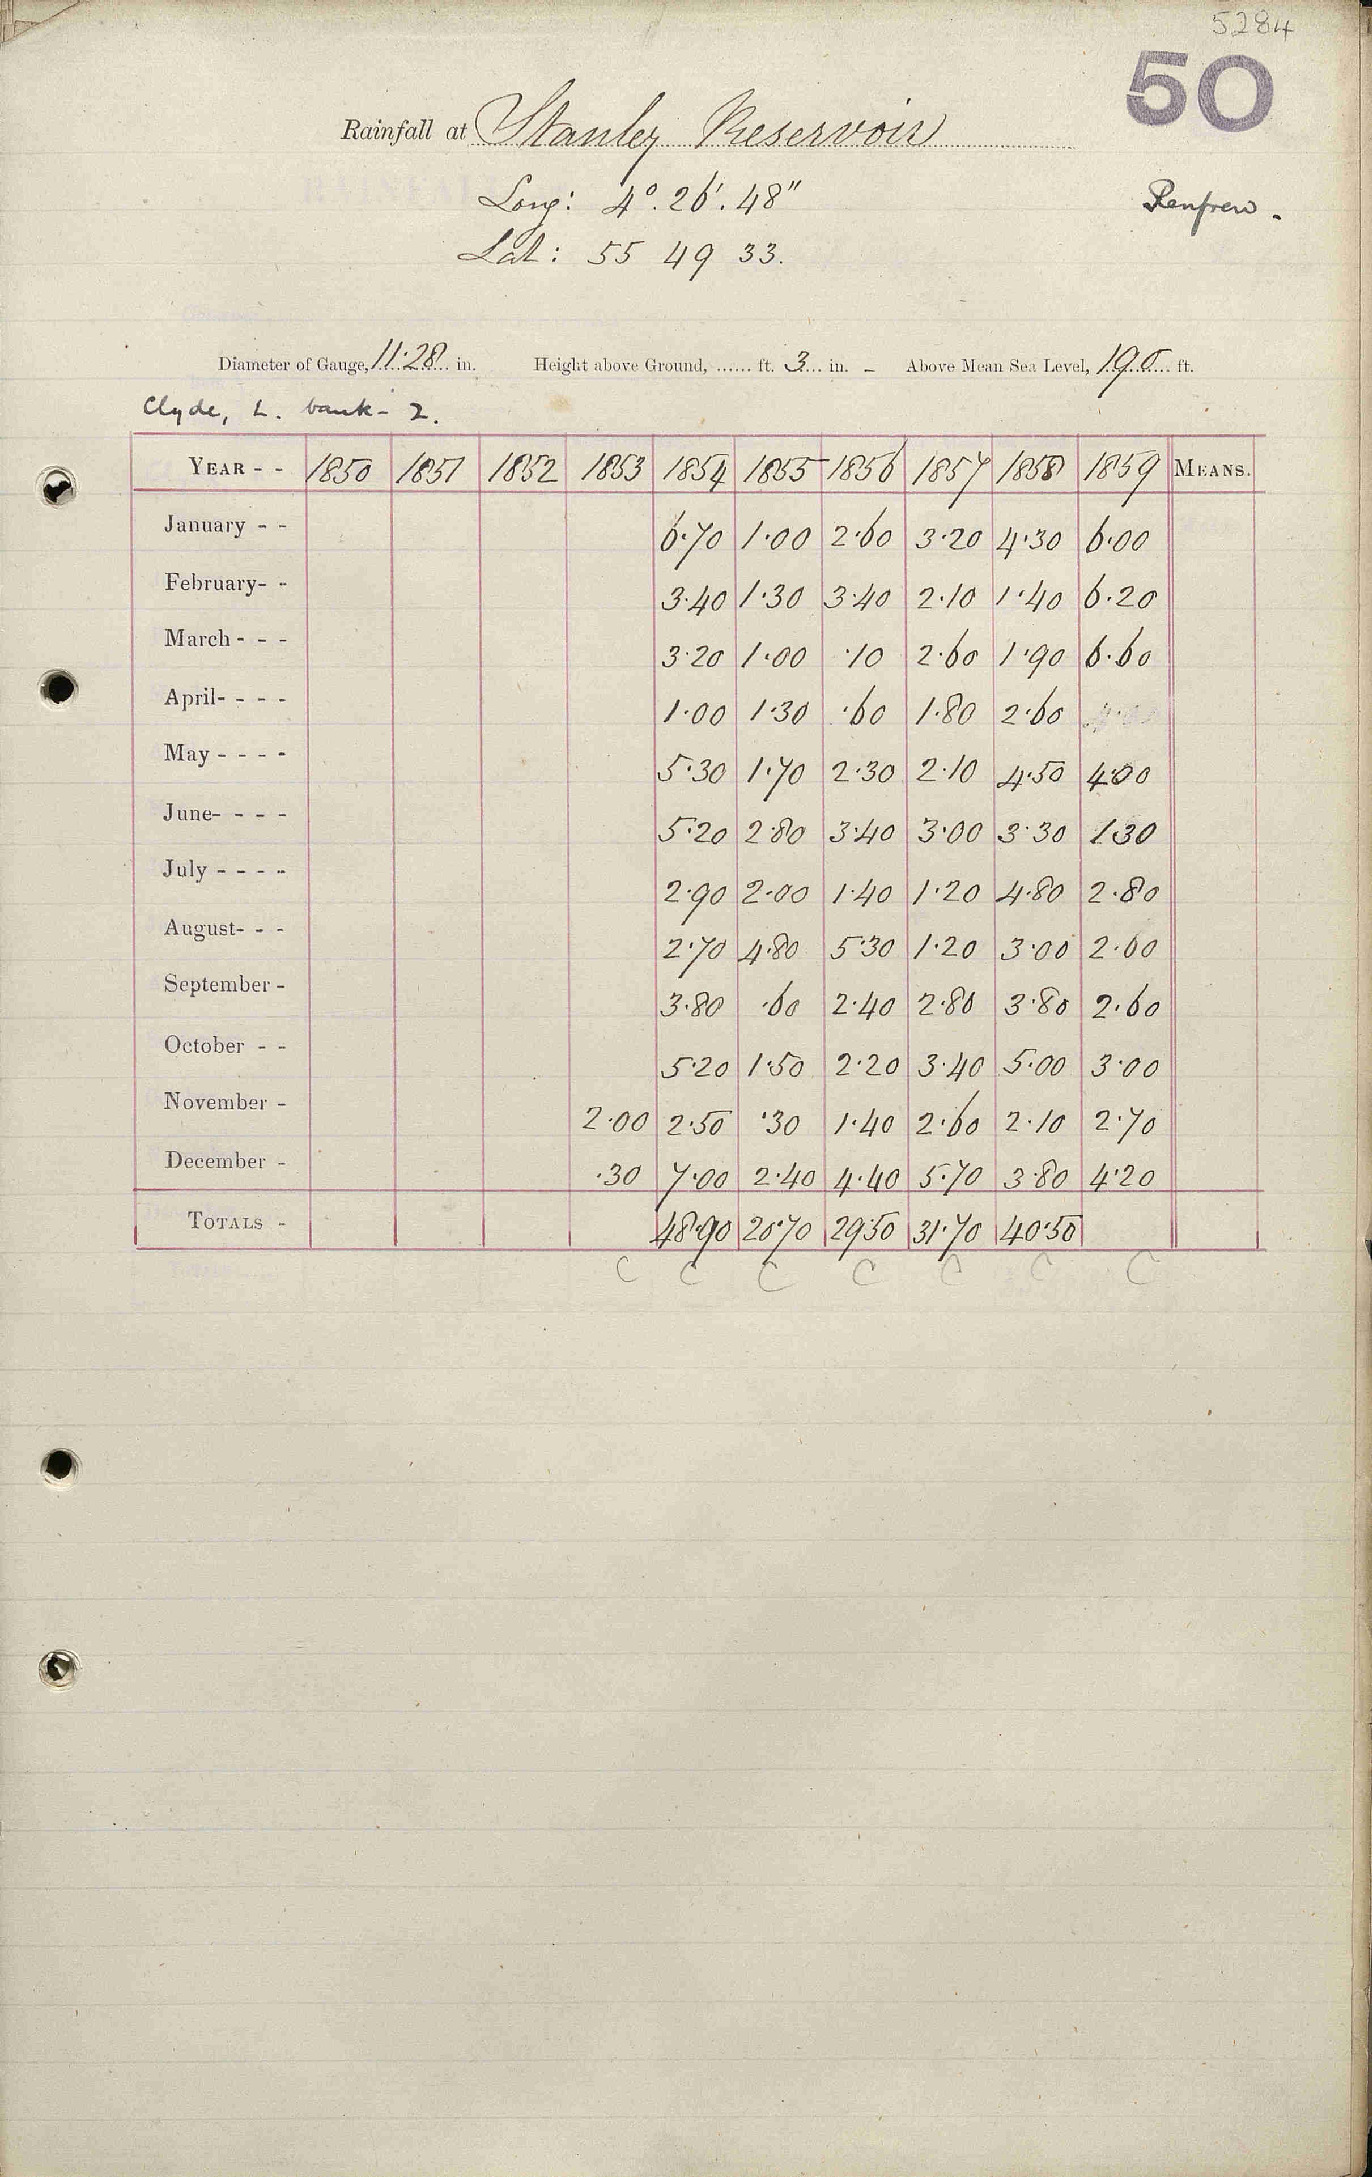 5284
50
Rainfall at Stanley Reservoir
Long: 4°. 26'. 48"
Renfrew.
Lat: 55 49 33.
Diameter of Gauge, 11·28 in. Height above Ground, ...... ft. 3 in. – Above Mean Sea Level, 190 ft.
Clyde, L. bank - 2.
YEAR - - 1850 1851 1852 1853 1854 1855 1856 1857 1858 1859 MEANS.
January - - 6·70 1·00 2·60 3·20 4·30 6·00
February- - 3·40 1·30 3·40 2·10 1·40 6·20
March - - - 3·20 1·00 ·10 2·60 1·90 6·60
April- - - - 1·00 1·30 ·60 1·80 2·60
May - - - - 5·30 1·70 2·30 2·10 4·50 4·00
June- - - - 5·20 2·80 3·40 3·00 3·30 1·30
July - - - - 2·90 2·00 1·40 1·20 4·80 2·80
August- - - 2·70 4·80 5·30 1·20 3·00 2·60
September - 3·80 ·60 2·40 2·80 3·80 2·60
October - - 5·20 1·50 2·20 3·40 5·00 3·00
November - 2·00 2·50 ·30 1·40 2·60 2·10 2·70
December - ·30 7·00 2·40 4·40 5·70 3·80 4·20
TOTALS - 48·90 20·70 29·50 31·70 40·50
C C C C C C C